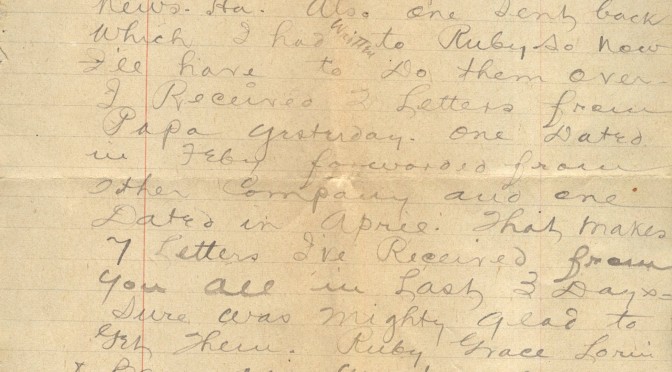 News. Ha. Also one Sent back
Which I had written to Ruby so now
I'll have to Do them over
I Received 2 Letters from
Papa yesterday. One Dated
in Feby forwarded from
other Company and one
Dated in April. That makes
7 Letters I've Received from
you all in Last 3 Days-
Sure was mighty glad to
Get Them. Ruby Grace Lorin